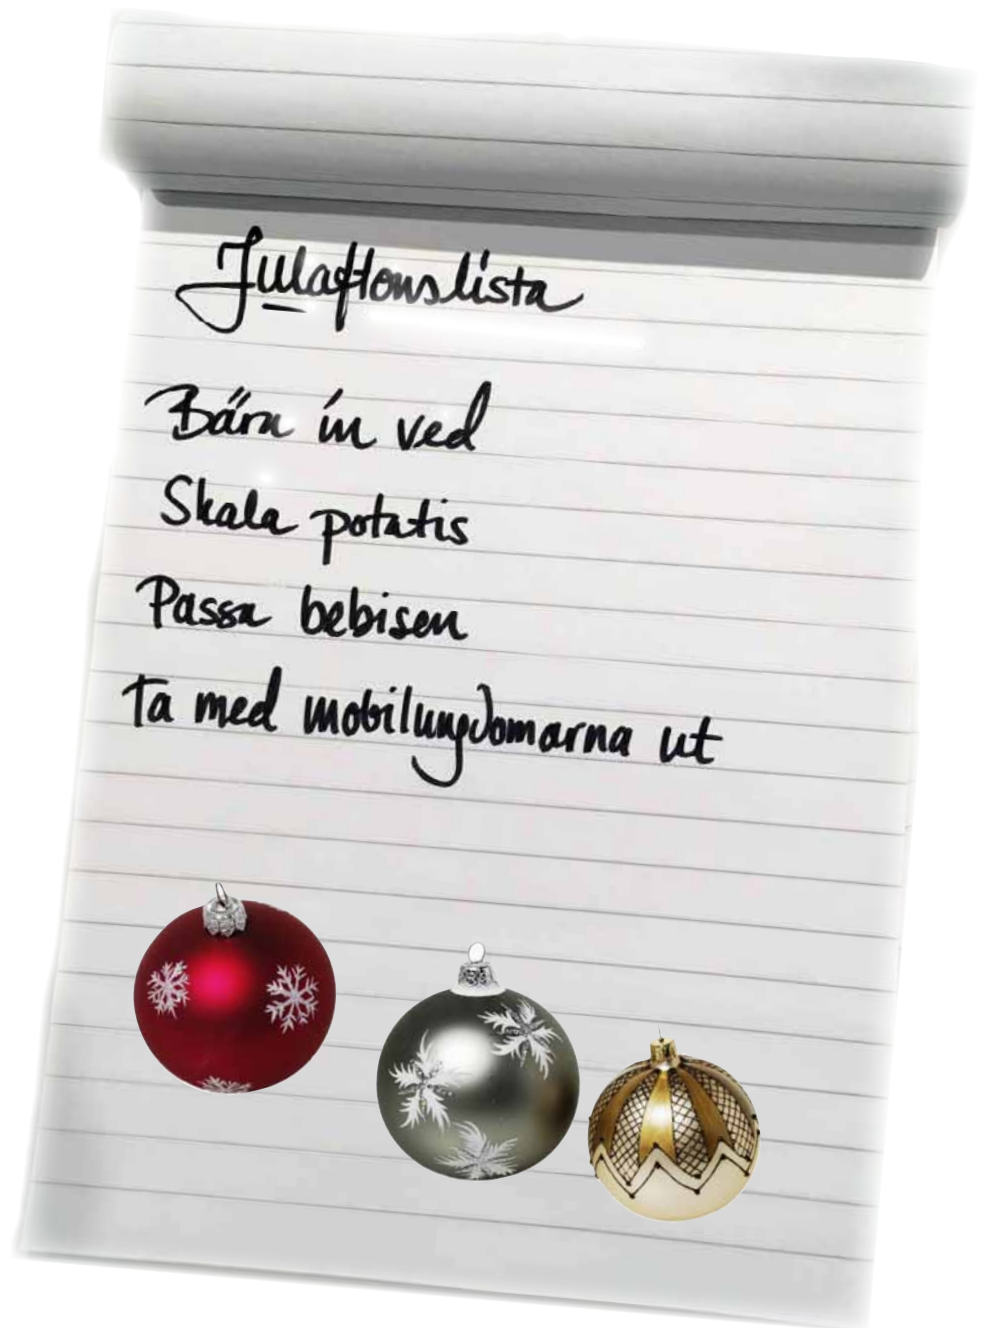 Julaftonslista
Bära in ved
Skala potatis
Passa bebisen
Ta med mobilungdomarna ut